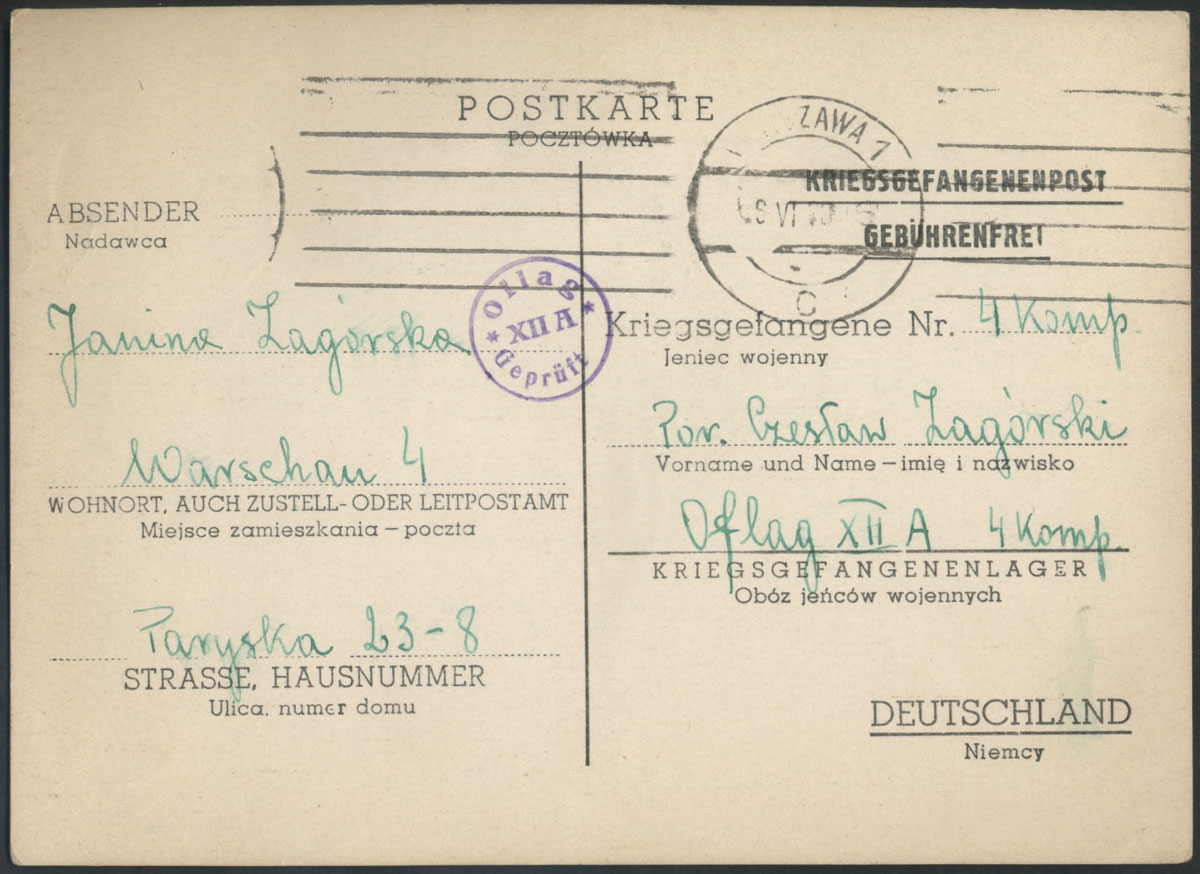 POSTKARTE
POCZTÓWKA
ZAWA 1
VI
C
KRIEGSGEFANGENENPOST
GEBÜHRENFREI
ABSENDER
Nadawca
Janina Zagórska
Warschau 4
WOHNORT, AUCH ZUSTELL- ODER LEITPOSTAMT
Miejsce zamieszkania – poczta
Paryska 23-8
STRASSE, HAUSNUMMER
Ulica, numer domu
Oflag
XII A
Geprüft
Kriegsgefangene Nr. 4 Komp.
Jeniec wojenny
Por. Czesław Zagórski
Vorname und Name – imię i nazwisko
Oflag XII A 4 Komp.
KRIEGSGEFANGENENLAGER
Obóz jeńców wojennych
DEUTSCHLAND
Niemcy